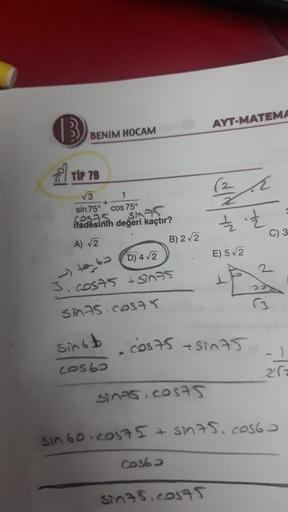 AYT-MATEMA
B BENİM HOCAM
TİP 79
√3/sin 75° + 1/cos 75°
cos75 sin75
ifadesinin değeri kaçtır?
A) √2 B) 2√2 C) 3
D) 4√2 E) 5√2
√2/2 · √2
1/2 · 1/2
1 2 √3
→ tan60
3. cos75 + sin75
sin75 . cos75
sin60/cos60 . cos75 + sin75
sin75 . cos75
sin60 . cos75 + sin75 . cos60
cos60
sin75 . cos75